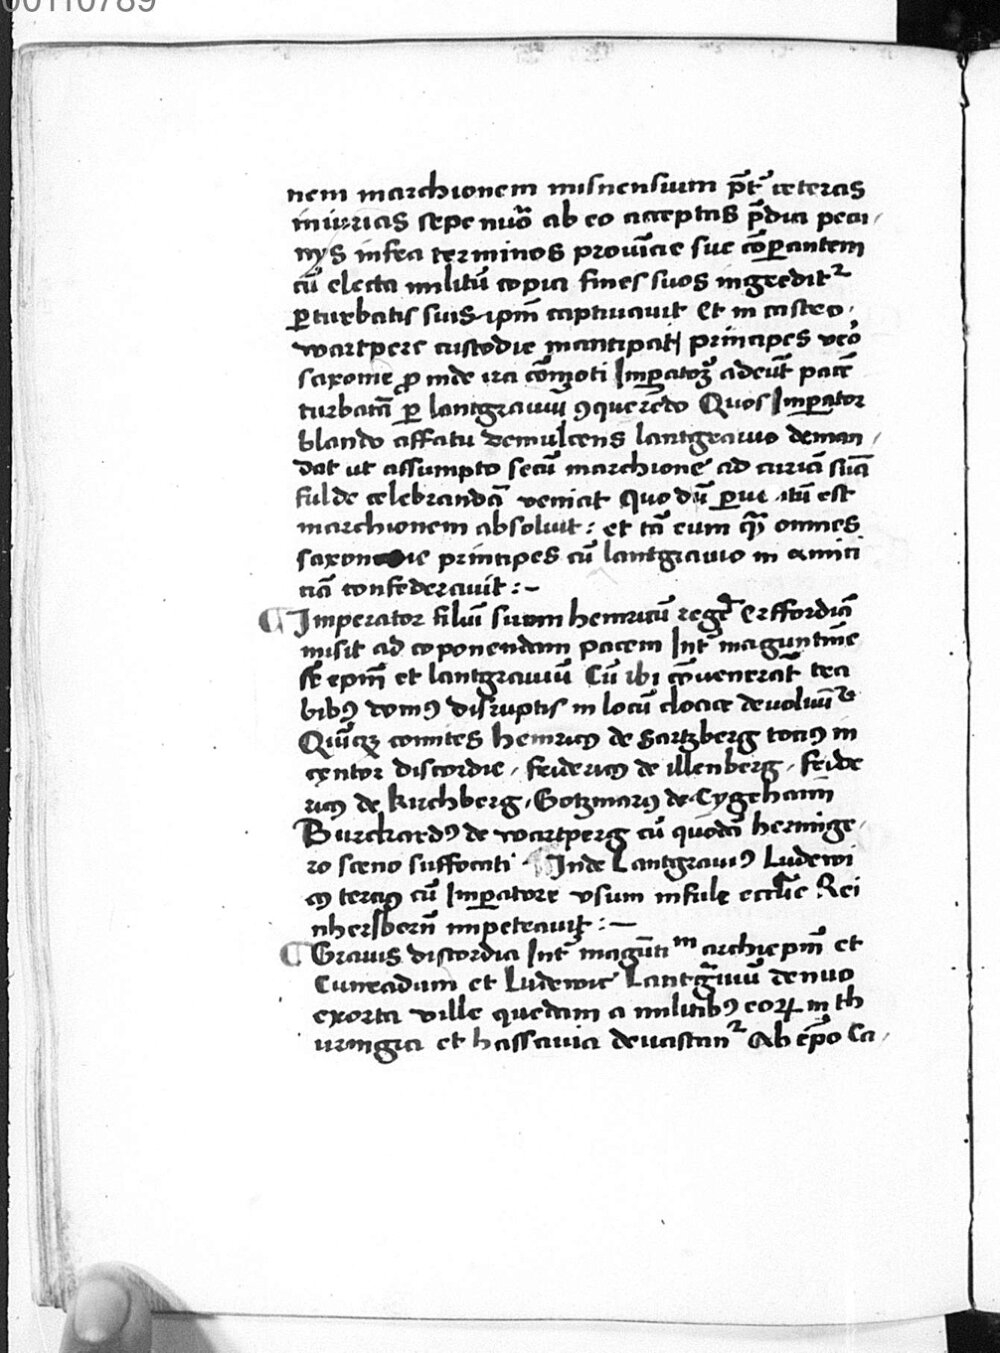 00110789
nem marchionem misnensium p̄t̄ ceteras
iniurias sepe nūo ab eo acceptas p̄dia pecu
nijs infra terminos prouīcie sue cōꝑantem
cū electa militū copia fines suos ingredit᷑
ꝑturbatis suis ip̄m captiuauit Et in castro
wartperc custodie mancipat principes vēo
saxonie ꝓinde ira cōmoti Imꝑatoꝝ adeūt pacē
turbatā ꝑ lantgrauiū ꝯquerēdo Quos Imꝑator
blando affatu demulcens lantgrauio deman
dat ut assumpto secū marchione ad curiā suā
fulde celebrandā veniat Quo dū ꝑue tū est
marchionem absoluit : et tā eum q̄ꝫ omnes
saxonie principes cū lantgrauio in amici
ciā confederauit :~
Imperator filiū suum henricū regē Erffordiā
misit ad coponendam pacem Int᷑ maguntinē
sē epm̄ et lantgrauiū Cū ibi cōuenerāt tra
bibꝯ domꝯ disruptis in locū cloace deuoluūt᷑
Quīqꝫ comites henricꝯ de Sartzberg tociꝯ in
centor discordie , fridericꝯ de illenberg , fride
ricꝯ de kirchberg , Gotzmarꝯ de Cygehann
Burchardꝯ de wartperg cū quodā herminge
ro sceno suffocati Inde Lantgrauiꝯ Ludewi
cꝯ terciꝯ cū Imꝑatore vsum infule eccl̄ie Rei
nhersbern̄ impetrauit :—
Grauis discordia Int᷑ magūtiᵐ archiepm̄ et
Cunradum et Ludewic Lantḡuiū denuo
exorta ville quedam a militibꝯ eoꝝ in th
uringia et hassauia deuastan᷑ Ab ep̄o Ca